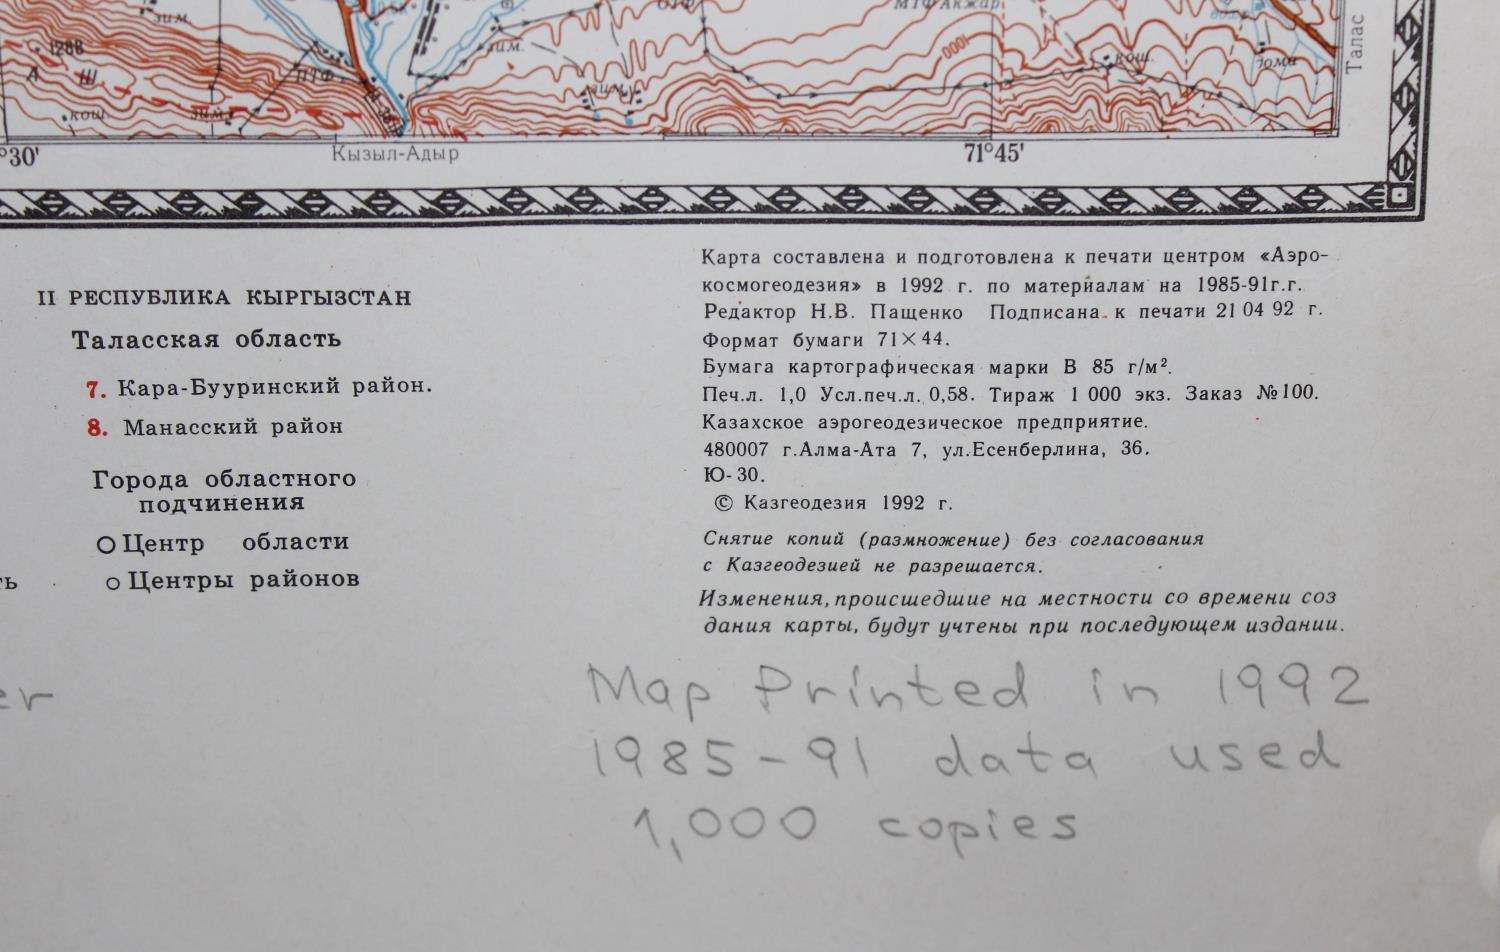 зим.
1288
А
Ш
ПТФ
кош.
зим.
зим.
зим.
ОТФ
МТФ Акжар
1000
кош.
Талас
°30'
Кызыл-Адыр
71°45'
II РЕСПУБЛИКА КЫРГЫЗСТАН
Таласская область
7. Кара-Бууринский район.
8. Манасский район
Города областного
подчинения
Центр области
Центры районов
ть
Карта составлена и подготовлена к печати центром «Аэро-
космогеодезия» в 1992 г. по материалам на 1985-91г.г.
Редактор Н.В. Пащенко Подписана к печати 21 04 92 г.
Формат бумаги 71×44.
Бумага картографическая марки В 85 г/м².
Печ.л. 1,0 Усл.печ.л. 0,58. Тираж 1 000 экз. Заказ №100.
Казахское аэрогеодезическое предприятие.
480007 г.Алма-Ата 7, ул.Есенберлина, 36.
Ю-30.
© Казгеодезия 1992 г.
Снятие копий (размножение) без согласования
с Казгеодезией не разрешается.
Изменения, происшедшие на местности со времени соз
дания карты, будут учтены при последующем издании.
er
Map Printed in 1992
1985-91 data used
1,000 copies